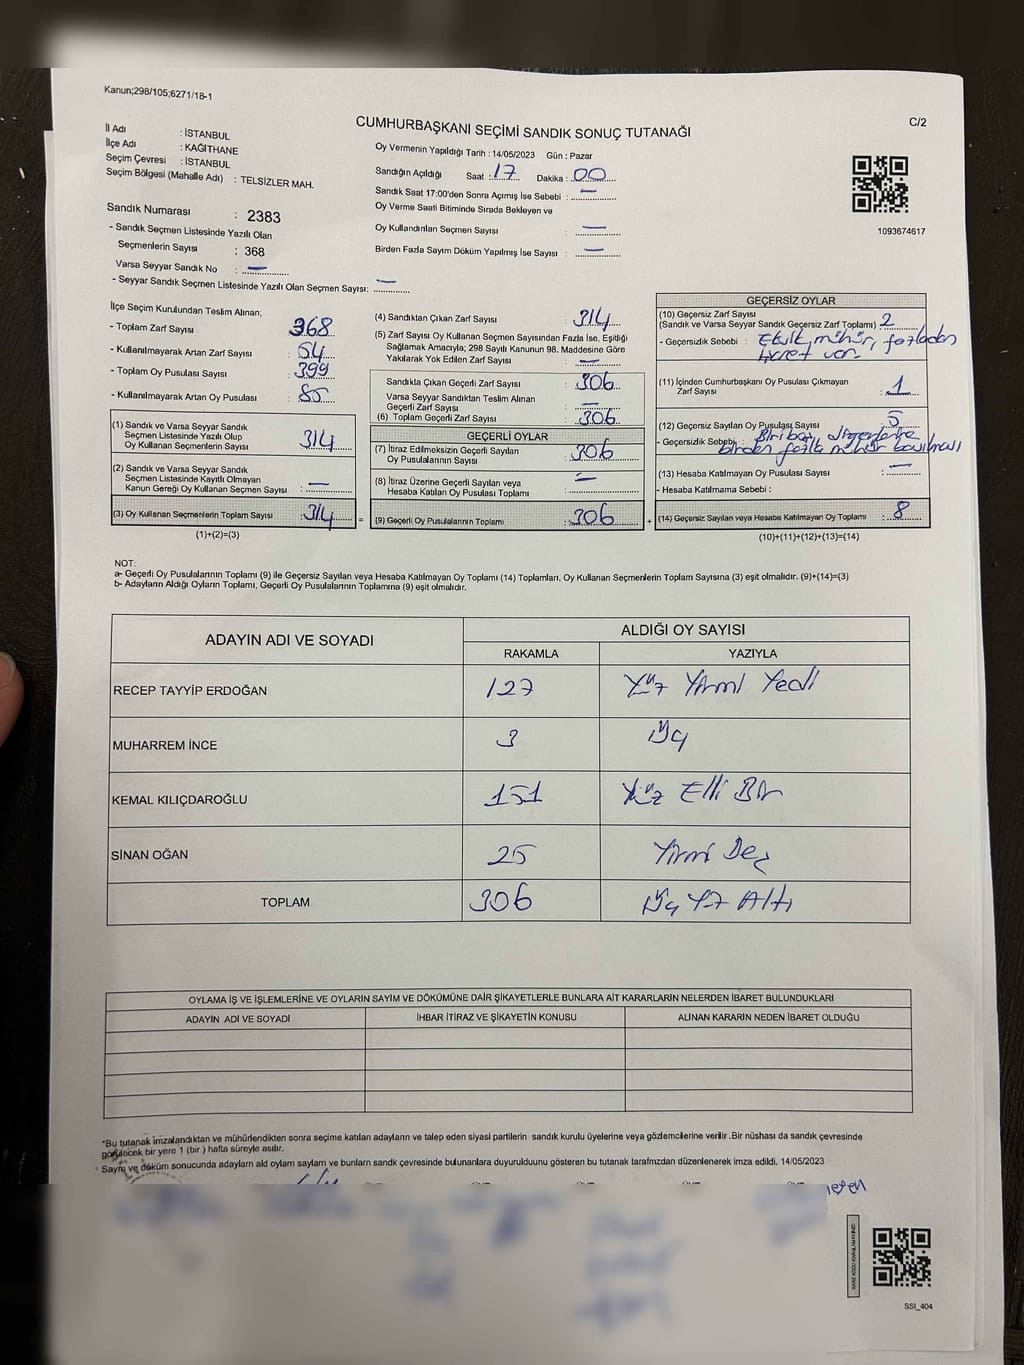 Kanun;298/105;6271/18-1
CUMHURBAŞKANI SEÇİMİ SANDIK SONUÇ TUTANAĞI
C/2
İl Adı : İSTANBUL
İlçe Adı : KAĞITHANE
Seçim Çevresi : İSTANBUL
Seçim Bölgesi (Mahalle Adı) : TELSİZLER MAH.
Sandık Numarası : 2383
- Sandık Seçmen Listesinde Yazılı Olan
Seçmenlerin Sayısı : 368
Varsa Seyyar Sandık No : —
- Seyyar Sandık Seçmen Listesinde Yazılı Olan Seçmen Sayısı: —
Oy Vermenin Yapıldığı Tarih : 14/05/2023 Gün : Pazar
Sandığın Açıldığı Saat : 17 Dakika : 00
Sandık Saat 17:00'den Sonra Açımış İse Sebebi : —
Oy Verme Saati Bitiminde Sırada Bekleyen ve
Oy Kullandırılan Seçmen Sayısı : —
Birden Fazla Sayım Döküm Yapılmış İse Sayısı : —
1093674617
İlçe Seçim Kurulundan Teslim Alınan;
- Toplam Zarf Sayısı : 368
- Kullanılmayarak Artan Zarf Sayısı : 54
- Toplam Oy Pusulası Sayısı : 399
- Kullanılmayarak Artan Oy Pusulası : 85
(1) Sandık ve Varsa Seyyar Sandık
Seçmen Listesinde Yazılı Olup
Oy Kullanan Seçmenlerin Sayısı : 314
(2) Sandık ve Varsa Seyyar Sandık
Seçmen Listesinde Kayıtlı Olmayan
Kanun Gereği Oy Kullanan Seçmen Sayısı : —
(3) Oy Kullanan Seçmenlerin Toplam Sayısı : 314
(1)+(2)=(3)
(4) Sandıktan Çıkan Zarf Sayısı : 314
(5) Zarf Sayısı Oy Kullanan Seçmen Sayısından Fazla İse, Eşitliği
Sağlamak Amacıyla; 298 Sayılı Kanunun 98. Maddesine Göre
Yakılarak Yok Edilen Zarf Sayısı : —
Sandıkta Çıkan Geçerli Zarf Sayısı : 306
Varsa Seyyar Sandıktan Teslim Alınan
Geçerli Zarf Sayısı : —
(6) Toplam Geçerli Zarf Sayısı : 306
GEÇERLİ OYLAR
(7) İtiraz Edilmeksizin Geçerli Sayılan
Oy Pusulalarının Sayısı : 306
(8) İtiraz Üzerine Geçerli Sayılan veya
Hesaba Katılan Oy Pusulası Toplamı : —
= (9) Geçerli Oy Pusulalarının Toplamı : 306 +
GEÇERSİZ OYLAR
(10) Geçersiz Zarf Sayısı
(Sandık ve Varsa Seyyar Sandık Geçersiz Zarf Toplamı) : 2
- Geçersizlik Sebebi : Eksik mühür, fazladan
işaret var
(11) İçinden Cumhurbaşkanı Oy Pusulası Çıkmayan
Zarf Sayısı : 1
(12) Geçersiz Sayılan Oy Pusulası Sayısı : 5
- Geçersizlik Sebebi : diğerlerine
birden fazla mühür basılması
(13) Hesaba Katılmayan Oy Pusulası Sayısı : —
- Hesaba Katılmama Sebebi :
(14) Geçersiz Sayılan veya Hesaba Katılmayan Oy Toplamı : 8
(10)+(11)+(12)+(13)=(14)
NOT:
a- Geçerli Oy Pusulalarının Toplamı (9) ile Geçersiz Sayılan veya Hesaba Katılmayan Oy Toplamı (14) Toplamları, Oy Kullanan Seçmenlerin Toplam Sayısına (3) eşit olmalıdır. (9)+(14)=(3)
b- Adayların Aldığı Oyların Toplamı, Geçerli Oy Pusulalarının Toplamına (9) eşit olmalıdır.
ADAYIN ADI VE SOYADI
ALDIĞI OY SAYISI
RAKAMLA YAZIYLA
RECEP TAYYİP ERDOĞAN 127 Yüz Yirmi Yedi
MUHARREM İNCE 3 Üç
KEMAL KILIÇDAROĞLU 151 Yüz Elli Bir
SİNAN OĞAN 25 Yirmi Beş
TOPLAM 306 Üç Yüz Altı
OYLAMA İŞ VE İŞLEMLERİNE VE OYLARIN SAYIM VE DÖKÜMÜNE DAİR ŞİKAYETLERLE BUNLARA AİT KARARLARIN NELERDEN İBARET BULUNDUKLARI
ADAYIN ADI VE SOYADI İHBAR İTİRAZ VE ŞİKAYETİN KONUSU ALINAN KARARIN NEDEN İBARET OLDUĞU
*Bu tutanak imzalandıktan ve mühürlendikten sonra seçime katılan adayların ve talep eden siyasi partilerin sandık kurulu üyelerine veya gözlemcilerine verilir .Bir nüshası da sandık çevresinde
görülecek bir yere 1 (bir ) hafta süreyle asılır.
Sayım ve döküm sonucunda adayların ald oyların sayları ve bunların sandk çevresinde bulunanlara duyurulduunu gösteren bu tutanak tarafmzdan düzenlenerek imza edildi. 14/05/2023
SSI_404